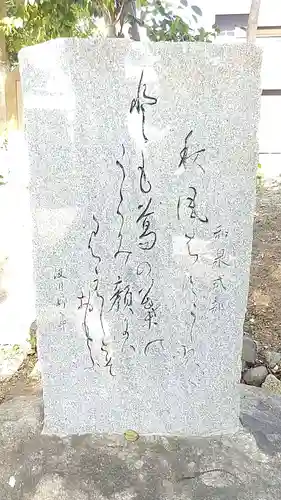 和泉式部
秋風はすこく吹
とも葛の葉の
うらみ顔には
見えしとそ
おもふ